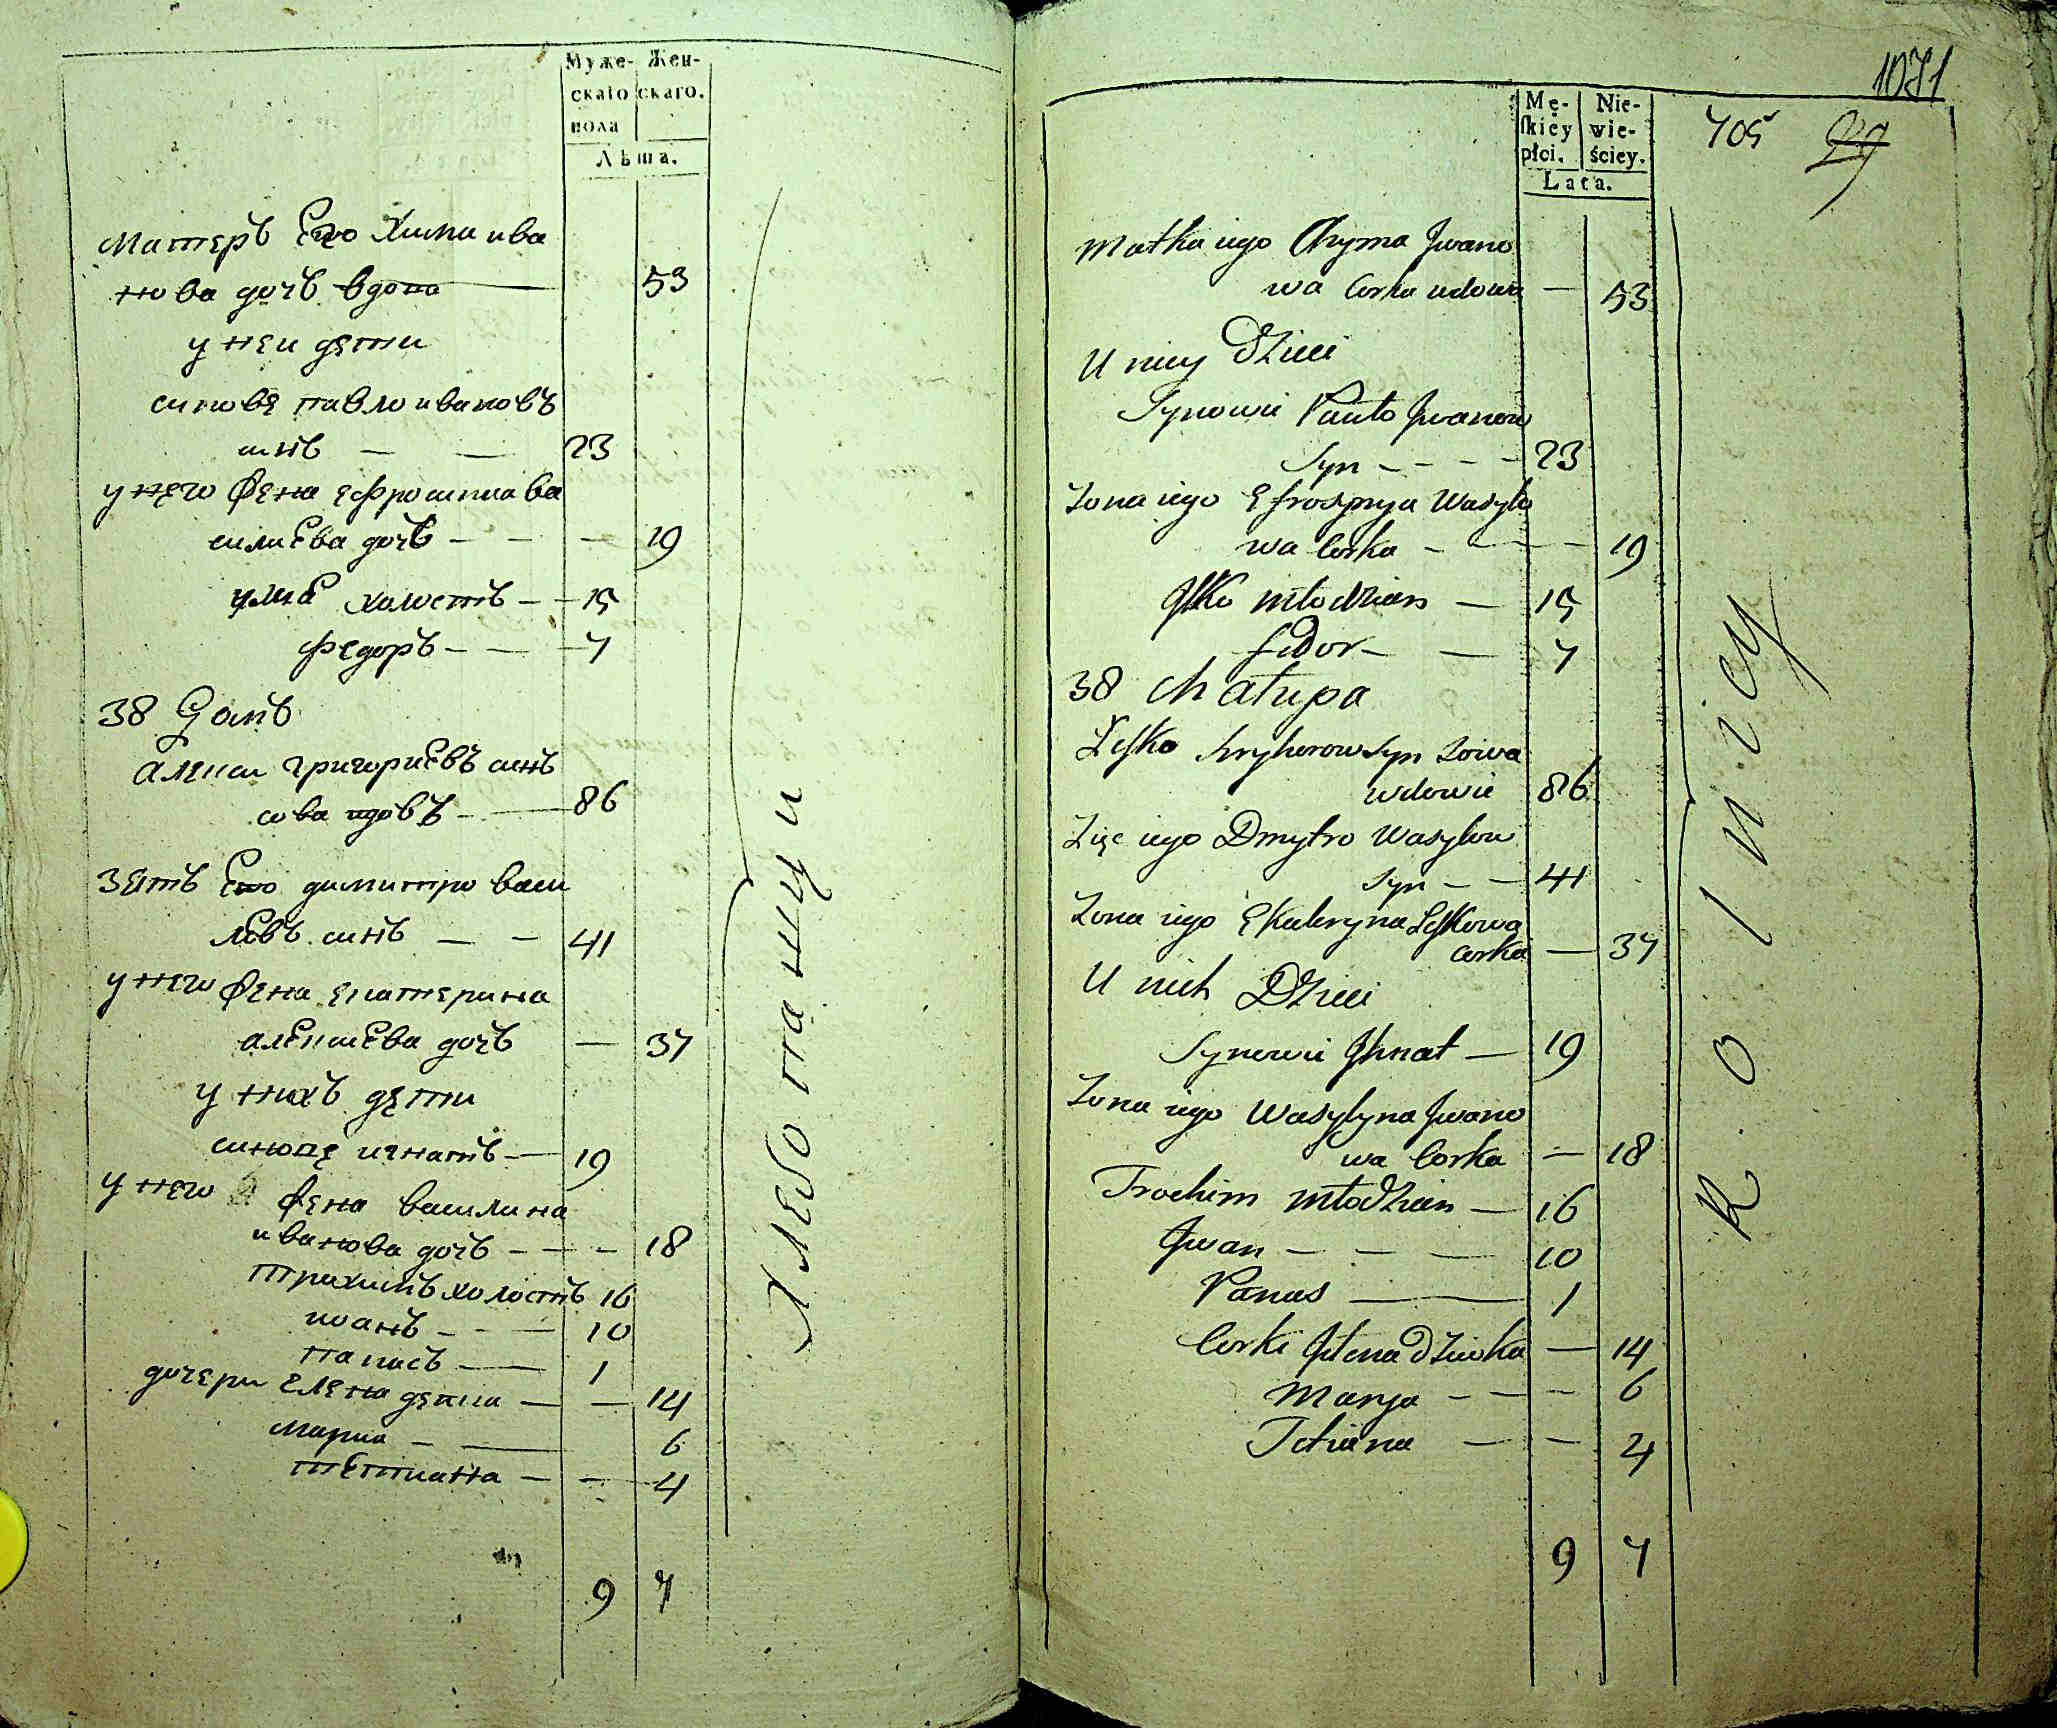 Муже- Жен-
скаго скаго.
пола
Лѣта.
Матеръ Его Хима ива
нова дочъ вдова 53
у неи дети
синове павло ивановъ
синъ — — 23
у него жена ефросиниа ва
силиева дочъ — — — 19
холостъ — 15
федоръ — — 7
38 Домъ
Алекси григориевъ синъ
86
зятъ Его димитро васи
левъ синъ — — 41
у него жена екатерина
алексиева дочъ — 37
у нихъ дети
синове игнатъ — 19
у него жена василина
иванова дочъ — — — 18
трихимъ холостъ 16
иванъ — — 10
панасъ — 1
дочери елена девка — — 14
мариа — — 6
тетиана — — 4
9 7
Хлебопашци
1071
Mę- Nie-
skiey wie-
płci. ściey.
Lata.
705 29
Matka iego Chyma Jwano
wa Corka wdowa — 53
U niey Dzieci
Synowie Pawło Jwanow
Syn - - - - 23
Zona iego Efrosynya Wasylo
wa Corka - - - - 19
młodzian — 15
fedor — — 7
38 Chałupa
Leśko hryhorow Syn
wdowiec 86
Zięc iego Dmytro Wasylow
Syn — — 41
Zona iego Ekateryna Leśkowa
corka — 37
U nich Dzieci
Synowie Jhnat — 19
Zona iego Wasylyna Jwano
wa Corka — 18
Trochim młodzian — 16
Jwan — — — 10
Panas — 1
Corki Jłena Dziewka — 14
Marya — — — 6
Tetiana — — 4
9 7
Rolnicy